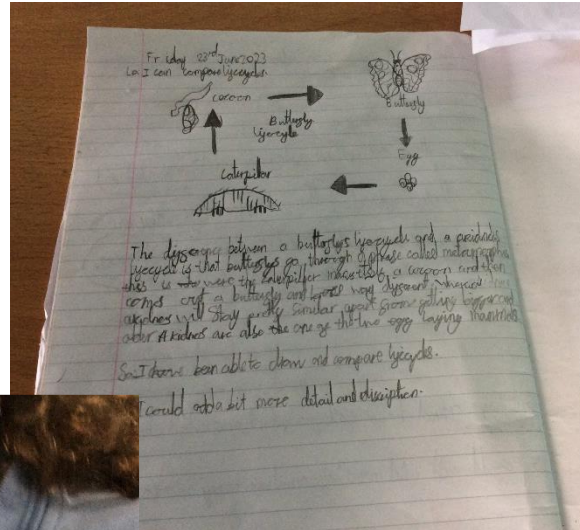 Friday 23rd June 2023
Lo: I can compare lifecycles.
cocoon
Butterfly
Butterfly
lifecycle
Egg
Caterpillar
The difference between a butterflys lifecycle and a
lifecycle is that butterflys go through a phrase called
this is were the caterpiller makes itself a cocoon and then
comes out a butterfly and looks very
will stay pretty similar apart from getting bigger and
older Akidnes are also the one of the two egg laying mammals
So: I have been able to draw and compare lifecycles.
I could add a bit more detail and discription.